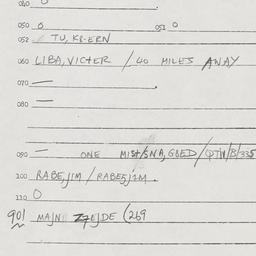 040 O
050 O 051 O
052 TU, KB-ERN
060 LIBA, VICTER / 40 MILES AWAY
070 —
080 —
090 — ONE MIST/SNA, GBED / QTIV/B/335
100 RABEJIM / RABE5JIM.
110 O
901 MAJN ZEJDE (269